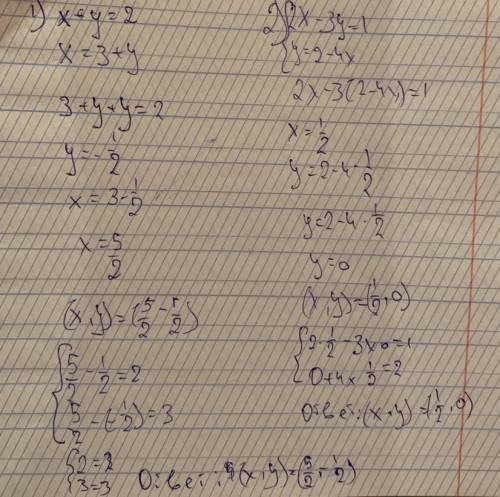 1) x+y=2
x=3+y
3+y+y=2
y=-1/2
x=3-1/2
x=5/2
(x,y)=(5/2 -1/2)
{5/2-1/2=2
5/2-(-1/2)=3
{2=2
3=3
Ответ: (x,y)=(5/2,-1/2)
2) {2x-3y=1
y=2-4x
2x-3(2-4x)=1
x=1/2
y=2-4·1/2
y=2-4·1/2
y=0
(x,y)=(1/2,0)
{2·1/2-3x0=1
0+4x1/2=2
Ответ:(x,y)=(1/2,0)